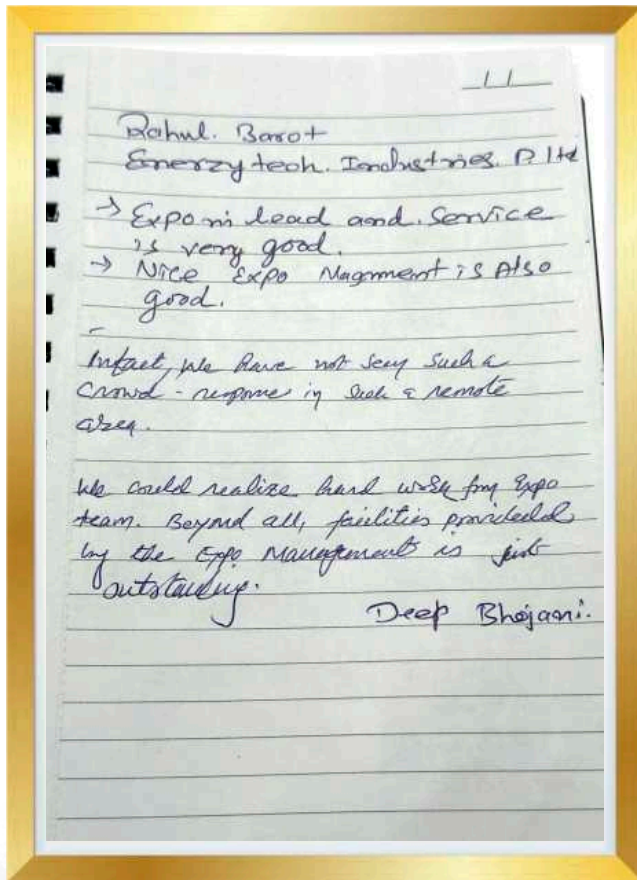 11
Rahul. Barot
Enerzytech. Industries. P. ltd
→ Expo in lead and. Service
is very good.
→ Nice Expo Magnment is Also
good.
Infact, We have not seen such a
crowd - response in such a remote
area.
We could realize hard work from Expo
team. Beyond all, facilities provideld
by the Expo Management is just
outstanding.
Deep Bhojani.